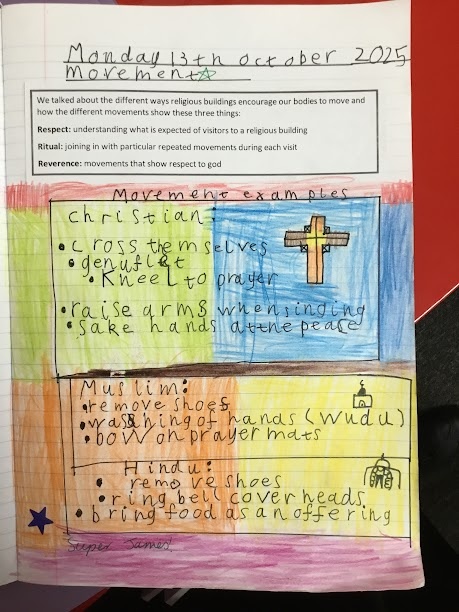 Monday 13th October 2025
Movement
We talked about the different ways religious buildings encourage our bodies to move and
how the different movements show these three things:
Respect: understanding what is expected of visitors to a religious building
Ritual: joining in with particular repeated movements during each visit
Reverence: movements that show respect to god
Movement examples
christian:
• cross themselves
• genuflet
• Kneel to prayer
• raise arms when singing
• sake hands at the peace
Muslim:
• remove shoes
• washing of hands (wudu)
• bow on prayer mats
Hindu:
• remove shoes
• ring bell cover heads
• bring food as an offering
Super James!